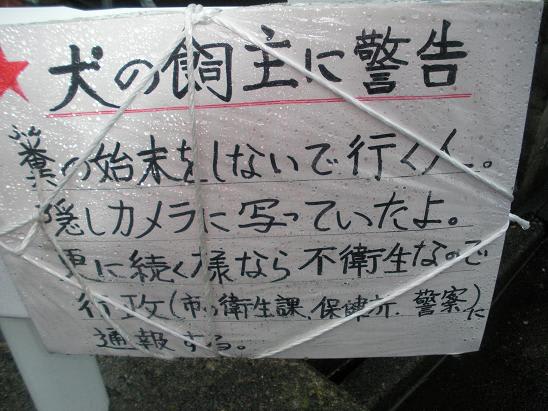 犬の飼主に警告
ふん
糞の始末をしないで行く人。
隠しカメラに写っていたよ。
更に続く様なら不衛生なので
行政(市の衛生課、保健所、警察)に
通報する。